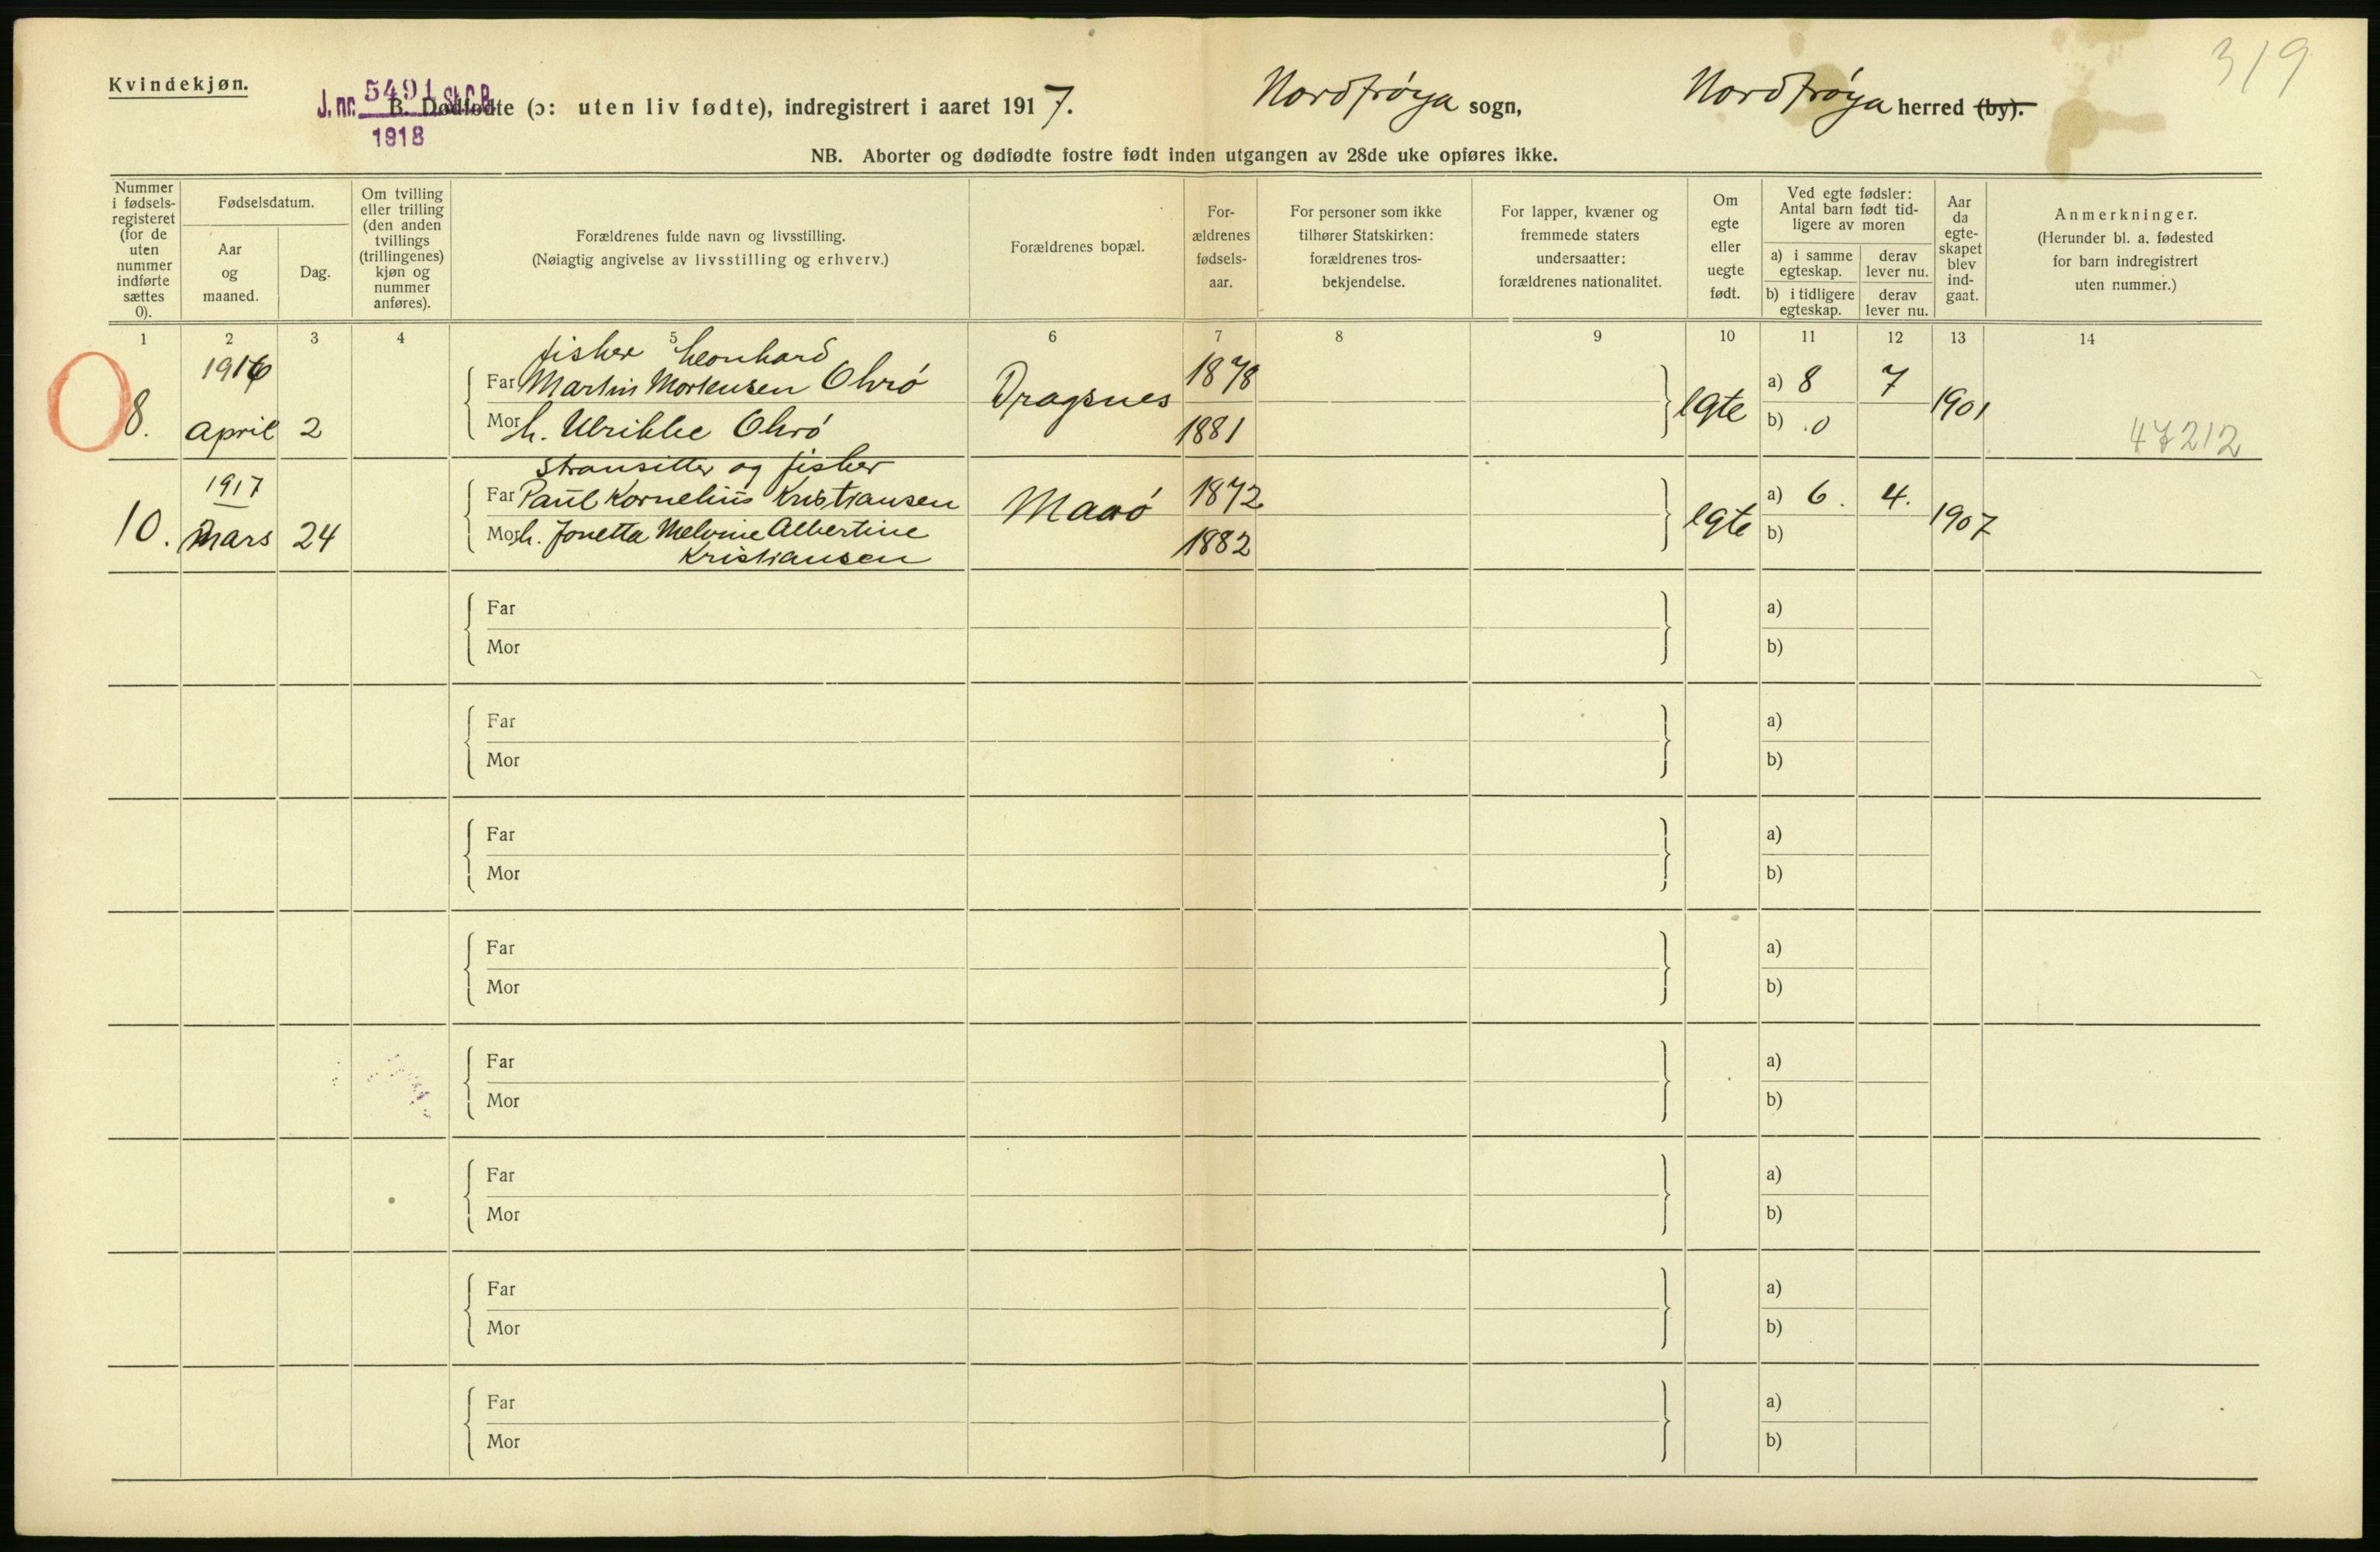 319
Kvindekjøn.
J. nr. 5491 St.C.B. 1918
B. Dødfødte (ɔ: uten liv fødte), indregistrert i aaret 1917. Nordfrøya sogn, Nordfrøya herred (by).
NB. Aborter og dødfødte fostre født inden utgangen av 28de uke opføres ikke.
Nummer i fødsels-registeret (for de uten nummer indførte sættes 0).
Fødselsdatum.
Aar og maaned.
Dag.
Om tvilling eller trilling (den anden tvillings (trillingenes) kjøn og nummer anføres).
Forældrenes fulde navn og livsstilling.
(Nøiagtig angivelse av livsstilling og erhverv.)
Forældrenes bopæl.
For-ældrenes fødsels-aar.
For personer som ikke tilhører Statskirken: forældrenes tros-bekjendelse.
For lapper, kvæner og fremmede staters undersaatter: forældrenes nationalitet.
Om egte eller uegte født.
Ved egte fødsler: Antal barn født tid-ligere av moren
a) i samme egteskap.
derav lever nu.
b) i tidligere egteskap.
derav lever nu.
Aar da egte-skapet blev ind-gaat.
Anmerkninger.
(Herunder bl. a. fødested for barn indregistrert uten nummer.)
1 2 3 4 5 6 7 8 9 10 11 12 13 14
fisker Leonhard
8. 1916 april 2
Far Martin Mortensen Dragsnes 1878 egte a) 8 7 1901
Mor h. Ulrikke 1881 b) 0
47212
Strandsitter og fisker
10. 1917 Mars 24
Far Paul Kornelius Kristiansen 1872 egte a) 6. 4. 1907
Mor h. Jonetta Melvine Albertine 1882 b)
Kristiansen
Far a)
Mor b)
Far a)
Mor b)
Far a)
Mor b)
Far a)
Mor b)
Far a)
Mor b)
Far a)
Mor b)
Far a)
Mor b)
Far a)
Mor b)